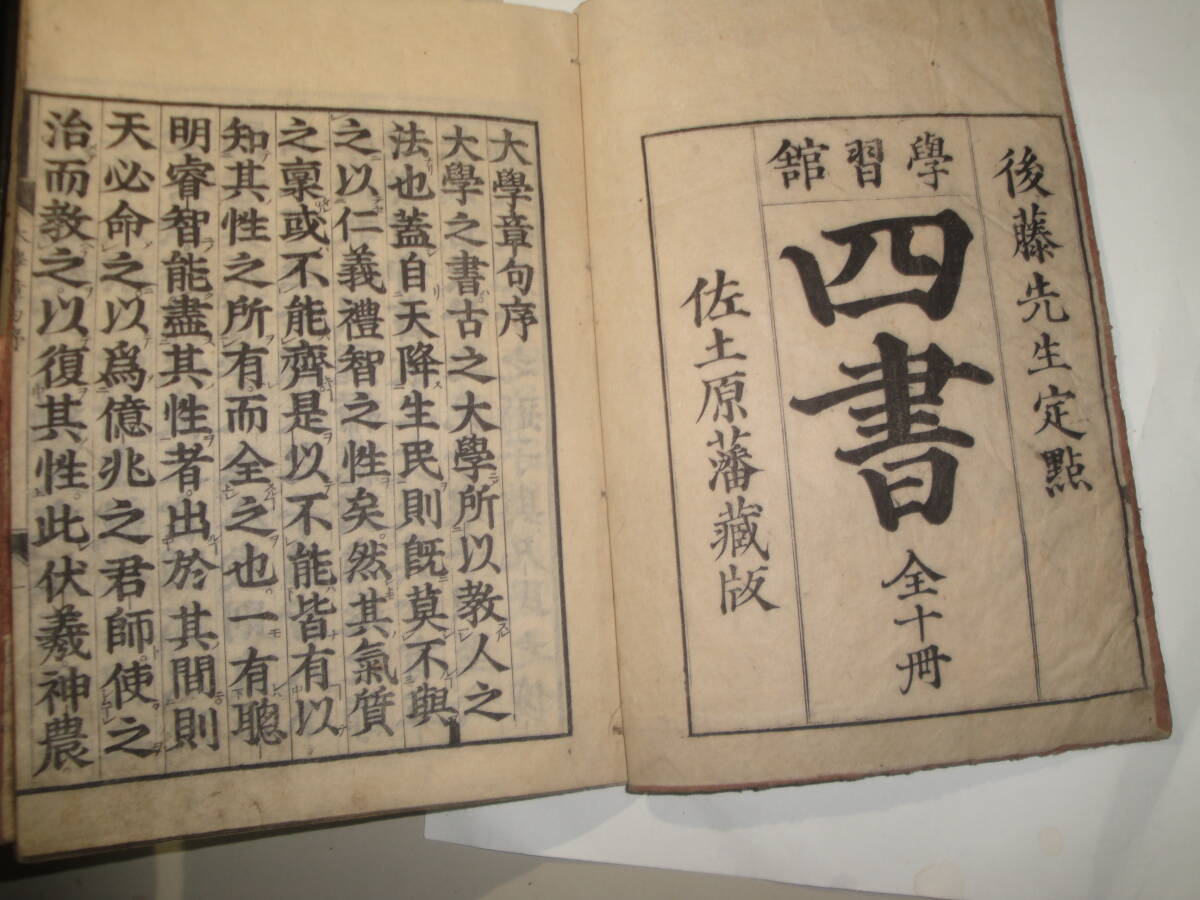 後藤先生定點
學習館
四書
全十冊
佐土原藩藏版
大學章句序
大學之書古之大學所以教人之
法也蓋自天降生民則既莫不與
之以仁義禮智之性矣然其氣質
之稟或不能齊是以不能皆有以
知其性之所有而全之也一有聰
明睿智能盡其性者出於其間則
天必命之以爲億兆之君師使之
治而教之以復其性此伏羲神農